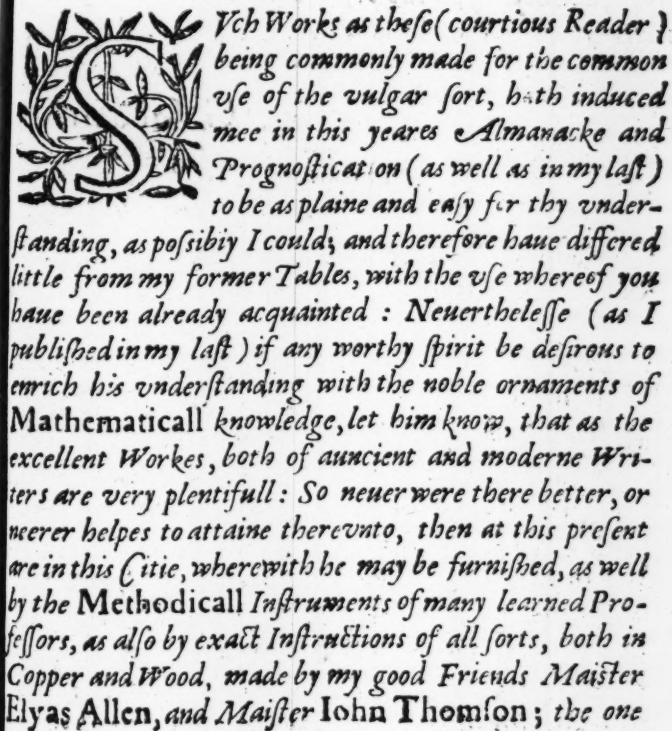 SVch Works as theſe (courtious Reader)
being commonly made for the common
vſe of the vulgar ſort, hath induced
mee in this yeares Almanacke and
Prognoſtication (as well as in my laſt)
to be as plaine and eaſy for thy vnder-
ſtanding, as poſsibiy I could; and therefore haue differed
little from my former Tables, with the vſe whereof you
haue been already acquainted : Neuertheleſſe (as I
publiſhed in my laſt) if any worthy ſpirit be deſirous to
enrich his vnderſtanding with the noble ornaments of
Mathematicall knowledge, let him know, that as the
excellent Workes, both of auncient and moderne Wri-
ters are very plentifull : So neuer were there better, or
neerer helpes to attaine therevnto, then at this preſent
are in this Citie, wherewith he may be furniſhed, as well
by the Methodicall Inſtruments of many learned Pro-
feſſors, as alſo by exact Inſtructions of all ſorts, both in
Copper and Wood, made by my good Friends Maiſter
Elyas Allen, and Maiſter Iohn Thomſon ; the one